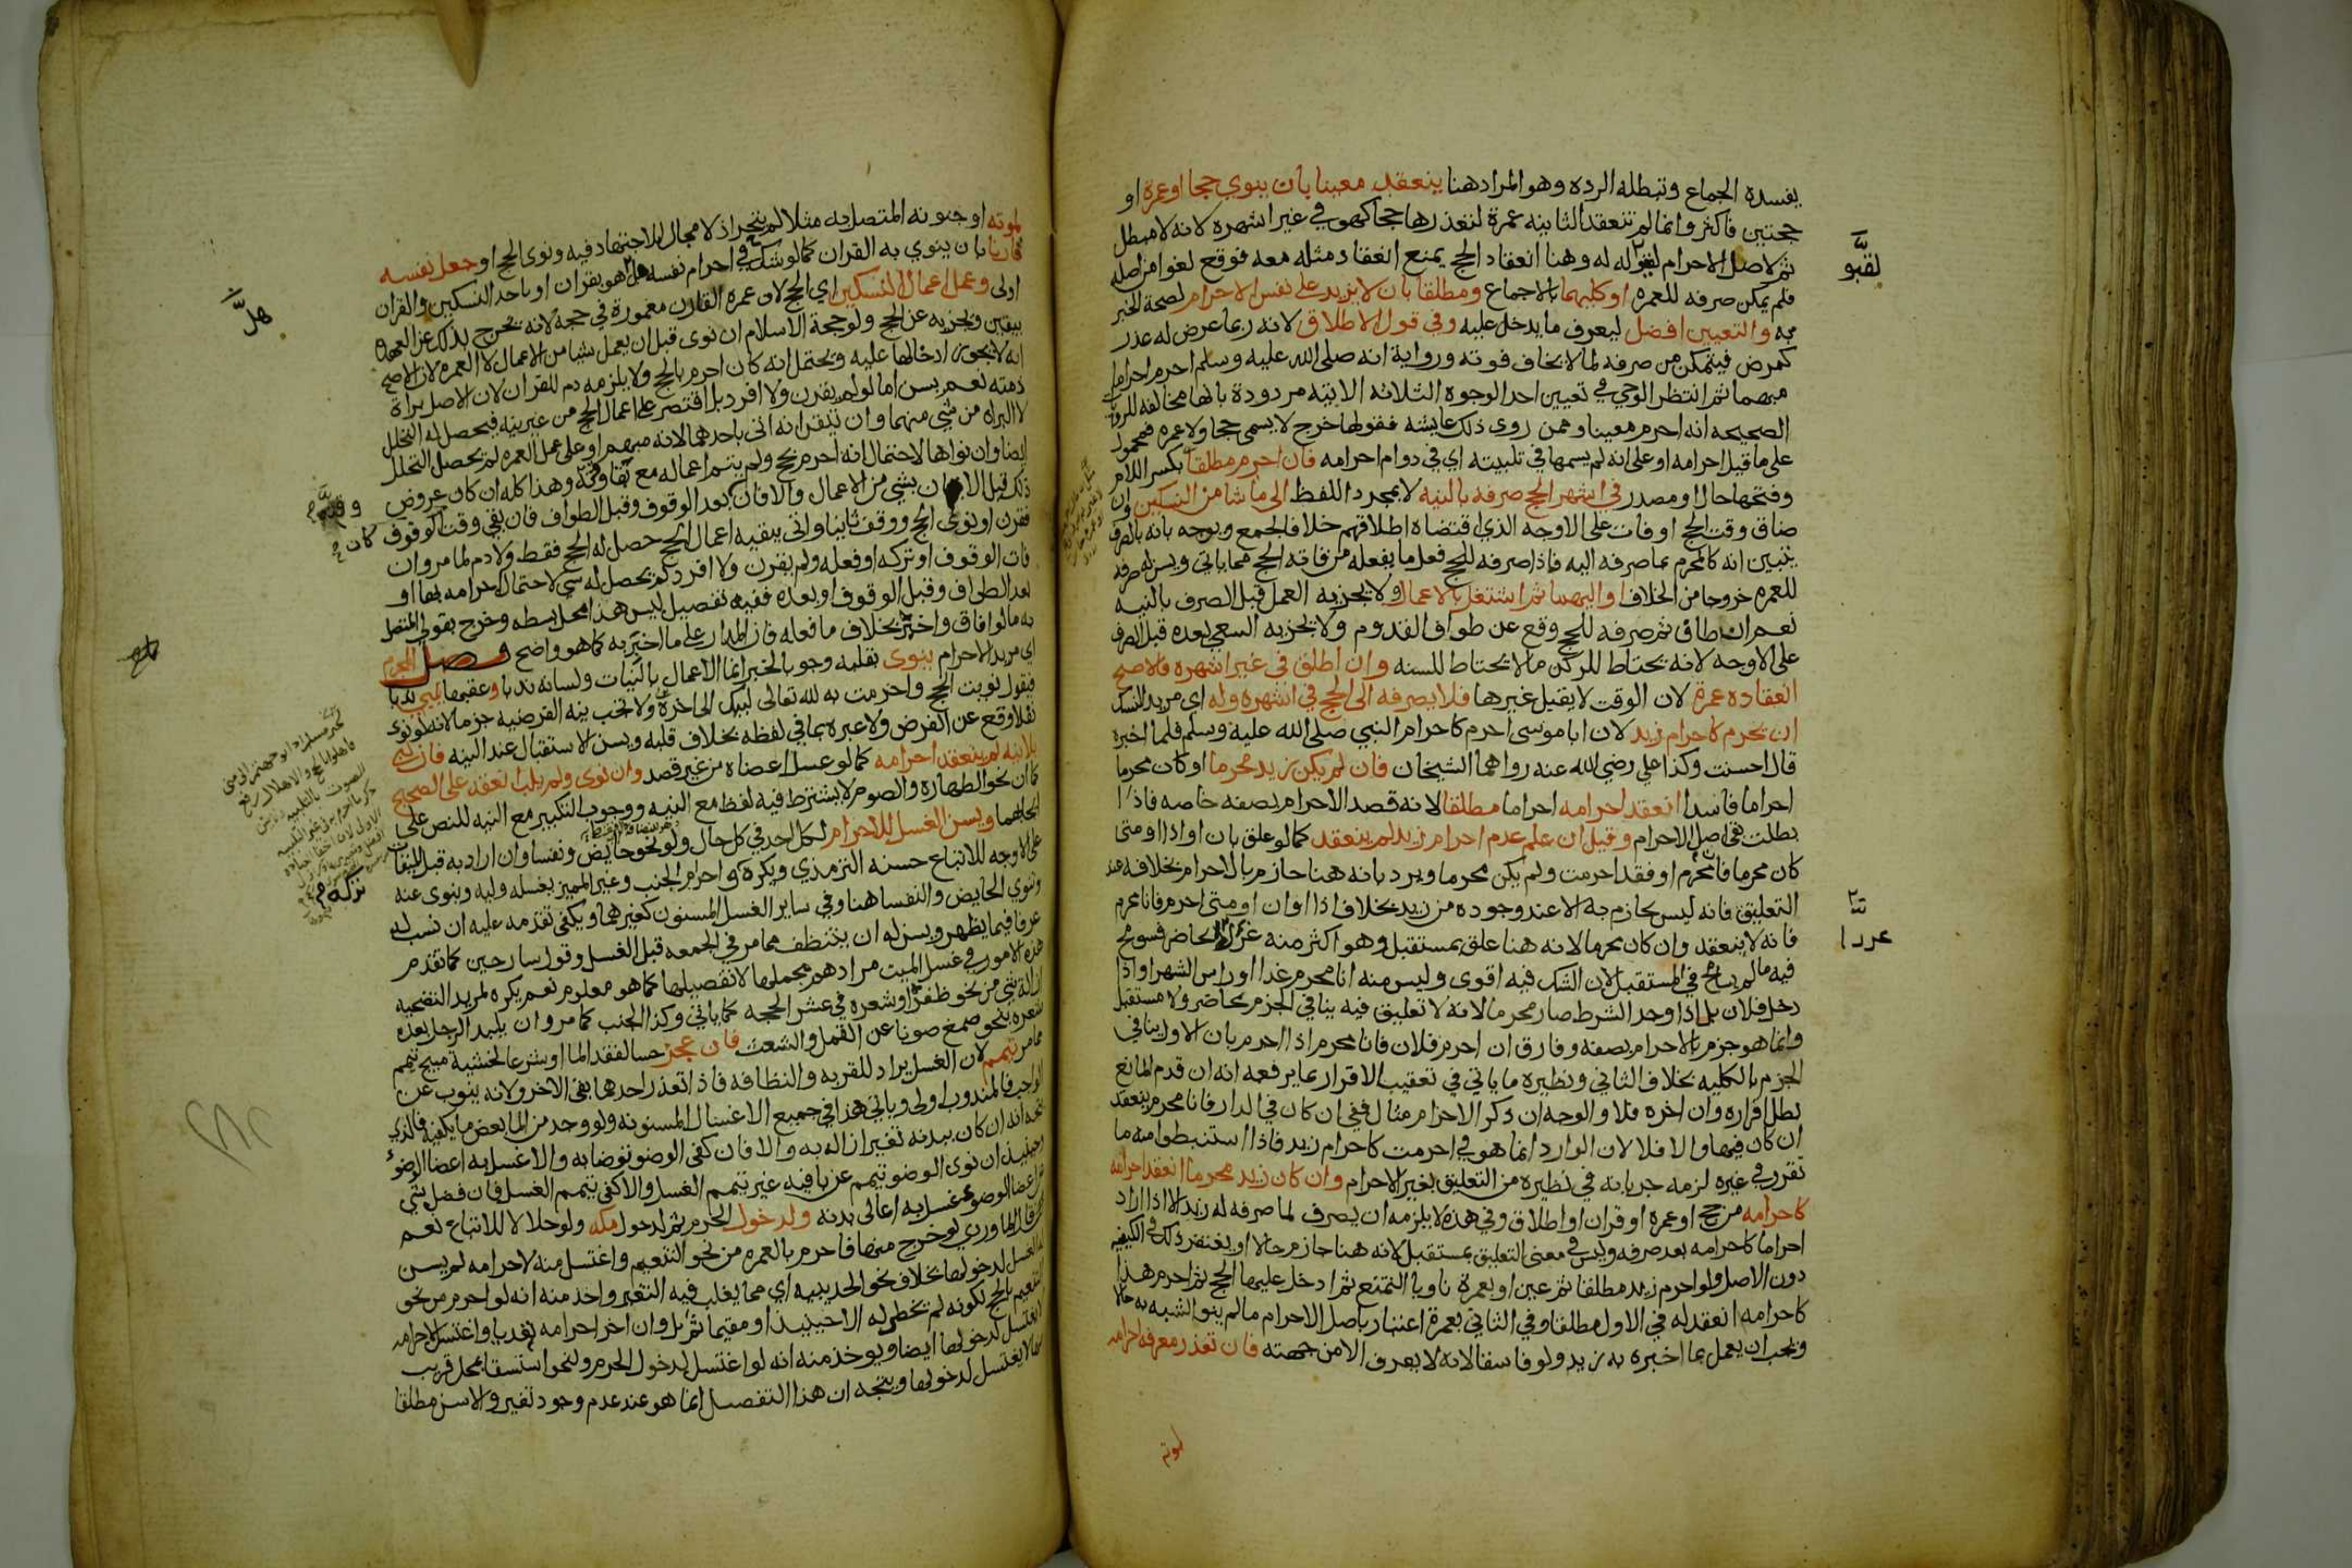 يفسده الجماع وتبطله الرده وهو المراد هنا ينعقد معينا بان ينوي حجا او عمرة او
حجتين فاكثر وانما لم تنعقد الثانيه عمرة لتعذرها حجا كهو في غير اشهره لانه لا مبطل
ثم لاصل الاحرام لقبوله له وهنا انعقاد الحج يمنع انعقاد مثله معه فوقع لغوا من اصله
فلم يمكن صرفه للعمره او كليهما بالاجماع ومطلقا بان لا يزيد على نفس الاحرام لصحة الخبر
به والتعيين افضل ليعرف ما يدخل عليه وفي قول الاطلاق لانه ربما عرض له عذر
كمرض فيتمكن من صرفه لما لا يخاف فوته ورواية انه صلى الله عليه وسلم احرم احراما
مبهما ثم انتظر الوحي في تعيين احد الوجوه الثلاثه الاتيه مردودة بانها مخالفه للروايات
الصحيحه انه احرم معينا وممن روى ذلك عايشه فقولها خرج لا يسمى حجا ولا عمره محمول
على ما قبل احرامه او على انه لم يسمها في تلبيته اي في دوام احرامه فان احرم مطلقا بكسر اللام
وفتحها حال او مصدر في اشهر الحج صرفه بالنيه لا بمجرد اللفظ الى ما شا من النسكين وان
ضاق وقت الحج او فات على الاوجه الذي اقتضاه اطلاقهم خلافا لجمع ويوجه بانه بالصرف
يتبين انه كالمحرم بما صرفه اليه فاذا صرفه للحج فعل ما يفعله من فاته الحج مما ياتي ويسن له صرفه
للعمره خروجا من الخلاف او اليهما ثم اشتغل بالاعمال ولا يجزيه العمل قبل الصرف بالنيه
نعم ان طاف ثم صرفه للحج وقع عن طواف القدوم ولا يجزيه السعي بعده قبل الصرف
على الاوجه لانه يحتاط للركن ما لا يحتاط للسنه وان اطلق في غير اشهره فالاصح
انعقاده عمرة لان الوقت لا يقبل غيرها فلا يصرفه الى الحج في اشهره وله اي مريد النسك
ان يحرم كاحرام زيد لان ابا موسى احرم كاحرام النبي صلى الله عليه وسلم فلما اخبره
قال احسنت وكذا علي رضي الله عنه رواهما الشيخان فان لم يكن زيد محرما او كان محرما
احراما فاسدا انعقد احرامه احراما مطلقا لانه قصد الاحرام بصفه خاصه فاذا
بطلت بقي اصل الاحرام وقيل ان علم عدم احرام زيد لم ينعقد كما لو علق بان او اذا او متى
كان محرما فانا محرم او فقد احرمت ولم يكن محرما ويرد بانه هنا جازم بالاحرام بخلافه عند
التعليق فانه ليس بجازم به الا عند وجوده من زيد بخلاف اذا او ان او متى احرم فانا محرم
فانه لا ينعقد وان كان محرما لانه هنا علق بمستقبل وهو اكثر منه غررا الحاضر فسومح
فيه ما لم يسامح في المستقبل لان الشك فيه اقوى وليس منه انا محرم غدا او راس الشهر او اذا
دخل فلان بل اذا وجد الشرط صار محرما لانه لا تعليق فيه ينافي الجزم بحاضر ولا مستقبل
وانما هو جزم بالاحرام بصفه وفارق ان احرم فلان فانا محرم اذا احرم بان الاول ينافي
الجزم بالكليه بخلاف الثاني ونظيره ما ياتي في تعقيب الاقرار بما يرفعه انه ان قدم المانع
بطل اقراره وان اخره فلا والوجه ان ذكر الاحرام مثال ففي ان كان في الدار فانا محرم ينعقد
ان كان فيها والا فلا لان الوارد انما هو في احرمت كاحرام زيد فاذا استنبطوا منه ما
تقرر في غيره لزمه جريانه في نظيره من التعليق بغير الاحرام وان كان زيد محرما انعقد احرامه
كاحرامه من حج او عمره او قران او اطلاق وفي هذه لا يلزمه ان يصرف لما صرفه له زيد الا اذا اراد
احراما كاحرامه بعد صرفه وليس في معنى التعليق بمستقبل لانه هنا جازم حالا او يغتفر ذلك في الكيفيه
دون الاصل ولو احرم زيد مطلقا ثم عين او بعمرة ناويا التمتع ثم ادخل عليها الحج ثم احرم هذا
كاحرامه انعقد له في الاول مطلقا وفي الثاني بعمرة اعتبارا باصل الاحرام ما لم ينو الشبه به حالا
ويجب ان يعمل بما اخبره به زيد ولو فاسقا لانه لا يعرف الا من جهته فان تعذر معرفة احرامه
لموته
لقبو
غررا
لموته او جنونه المتصل به مثلا لم يتحر اذ لا مجال للاجتهاد فيه ونوى الحج او جعل نفسه
قارنا بان ينوي به القران كما لو شك في احرام نفسه هل هو بقران او باحد النسكين والقران
اولى وعمل اعمال النسكين اي الحج لان عمرة القارن مغمورة في حجه لانه يخرج بذلك عن العهده
بيقين ويجزيه عن الحج ولو حجة الاسلام ان نوى قبل ان يعمل شيا من الاعمال لا العمره لان الاصح
انه لا يجوز ادخالها عليه ويحتمل انه كان احرم بالحج ولا يلزمه دم للقران لان الاصل براة
ذمته نعم يسن اما لو لم يقرن ولا افرد بل اقتصر على اعمال الحج من غير نيه فيحصل له التحلل
لا البراه من شي منهما وان تيقن انه اتى باحدهما لانه مبهم او على عمل العمره لم يحصل التحلل
ايضا وان نواها لاحتمال انه احرم بحج ولم يتم اعماله مع بقا وقته وهذا كله ان كان عروض
ذلك قبل الاتيان بشي من الاعمال والا فان كان بعد الوقوف وقبل الطواف فان بقي وقت الوقوف
فقرن او نوى الحج ووقف ثانيا واتى ببقيه اعمال الحج حصل له الحج فقط ولا دم لما مر وان
فات الوقوف او تركه او فعله ولم يقرن ولا افرد لم يحصل له شي لاحتمال احرامه بها او
بعد الطواف وقبل الوقوف او بعده ففيه تفصيل ليس هذا محل بسطه وخرج بقولي المتصل
به ما لو افاق واخبر بخلاف ما فعله فان المدار على ما اخبر به كما هو واضح فصل المحرم
اي مريد الاحرام ينوي بقلبه وجوبا لخبر انما الاعمال بالنيات ولسانه ندبا وعقبها يلبي ندبا
فيقول نويت الحج واحرمت به لله تعالى لبيك الى اخره ولا تجب نية الفرضيه جزما لانه لو نوى
نفلا وقع عن الفرض ولا عبره بما في لفظه بخلاف قلبه ويسن الاستقبال عند النيه فان لبى
بلا نيه لم ينعقد احرامه كما لو غسل اعضاه من غير قصد وان نوى ولم يلب انعقد على الصحيح
كما ان نحو الطهارة والصوم لا يشترط فيه لفظ مع النيه ووجوب التكبير مع النيه للنص على
ايجابهما ويسن الغسل للاحرام لكل احد في كل حال ولو نحو حايض ونفسا وان اراد به قبل الميقات
على الاوجه للاتباع حسنه الترمذي ويكره تركه واحرام الجنب وغير المميز يغسله وليه وينوي عنه
وتنوي الحايض والنفسا هنا وفي ساير الغسل المسنون كغيرها ويكفى تقدمه عليه ان نسب له
عرفا فيما يظهر ويسن له ان يتنظف مما مر في الجمعه قبل الغسل وقول شارحين كما تقدم
هذه الامور في غسل الميت مرادهم مجملها لا تفصيلها كما هو معلوم نعم يكره لمريد التضحيه
ازالة شي من نحو ظفره او شعره في عشر الحجه كما ياتي وكذا الجنب كما مر وان يلبد الرجل بعده
شعره بنحو صمغ صونا عن القمل والشعث فان عجز حسا لفقد الما او شرعا لخشية مبيح تيمم
مما مر تيمم لان الغسل يراد للقربه والنظافه فاذا تعذر احدهما بقي الاخر ولانه ينوب عن
الواجب فالمندوب اولى وياتي هذا في جميع الاغسال المسنونه ولو وجد من الما بعض ما يكفيه فالذي
يتجه انه ان كان ببدنه تغير ازاله به والا فان كفى الوضو توضا به والا غسل به اعضا الوضوء
وحينيذ ان نوى الوضو تيمم عن باقيه غير تيمم الغسل والا كفى تيمم الغسل فان فضل شي
عن اعضا الوضوء غسل به اعالى بدنه ولدخول الحرم ثم لدخول مكه ولو حلالا للاتباع نعم
قال الماوردي لو خرج منها فاحرم بالعمره من نحو التنعيم واغتسل منه لاحرامه لم يسن
الغسل لدخولها بخلاف نحو الحديبيه اي مما يغلب فيه التغير واخذ منه انه لو احرم من نحو
التنعيم بالحج لكونه لم يخطر له الا حينيذ او مقيما ثم بل وان اخر احرامه تعديا واغتسل لاحرامه
لا يغتسل لدخولها ايضا ويوخذ منه انه لو اغتسل لدخول الحرم ولنحو استسقا بمحل قريب
منها لا يغتسل لدخولها ويتجه ان هذا التفصيل انما هو عند عدم وجود تغير والا سن مطلقا
هل
تركه